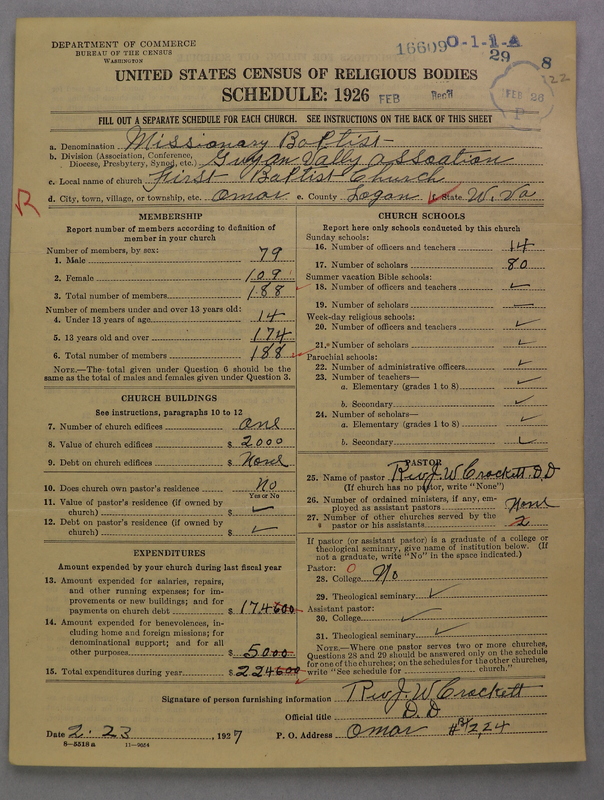 DEPARTMENT OF COMMERCE
BUREAU OF THE CENSUS
WASHINGTON
16609 O-1-1-A
29
8
122
UNITED STATES CENSUS OF RELIGIOUS BODIES
SCHEDULE: 1926
FEB Rec'd
FEB 26
P
FILL OUT A SEPARATE SCHEDULE FOR EACH CHURCH. SEE INSTRUCTIONS ON THE BACK OF THIS SHEET
a. Denomination Missionary Baptist
b. Division (Association, Conference, Diocese, Presbytery, Synod, etc.) Guyan Vally assoation
c. Local name of church First Baptist Church
d. City, town, village, or township, etc. Omar e. County Logan f. State W. Va
R
MEMBERSHIP
Report number of members according to definition of
member in your church
Number of members, by sex:
1. Male 79
2. Female 109
3. Total number of members 188
Number of members under and over 13 years old:
4. Under 13 years of age 14
5. 13 years old and over 174
6. Total number of members 188
NOTE.—The total given under Question 6 should be
same as the total of males and females given under Question 3.
CHURCH BUILDINGS
See instructions, paragraphs 10 to 12
7. Number of church edifices one
8. Value of church edifices $ 2000
9. Debt on church edifices $ None
10. Does church own pastor's residence No
Yes or No
11. Value of pastor's residence (if owned by
church) $ ✓
12. Debt on pastor's residence (if owned by
church) $ ✓
EXPENDITURES
Amount expended by your church during last fiscal year
13. Amount expended for salaries, repairs,
and other running expenses; for im-
provements or new buildings; and for
payments on church debt $ 174600
14. Amount expended for benevolences, in-
cluding home and foreign missions; for
denominational support; and for all
other purposes $ 5000
15. Total expenditures during year $ 224600
CHURCH SCHOOLS
Report here only schools conducted by this church
Sunday schools:
16. Number of officers and teachers 14
17. Number of scholars 80
Summer vacation Bible schools:
18. Number of officers and teachers ✓
19. Number of scholars —
Week-day religious schools:
20. Number of officers and teachers ✓
21. Number of scholars ✓
Parochial schools:
22. Number of administrative officers ✓
23. Number of teachers—
a. Elementary (grades 1 to 8) ✓
b. Secondary ✓
24. Number of scholars—
a. Elementary (grades 1 to 8) ✓
b. Secondary ✓
PASTOR
25. Name of pastor Rev J. W. Crockett, D. D
(If church has no pastor, write "None")
26. Number of ordained ministers, if any, em-
ployed as assistant pastors None
27. Number of other churches served by the
pastor or his assistants 2
If pastor (or assistant pastor) is a graduate of a college or
theological seminary, give name of institution below. (If
not a graduate, write "No" in the space indicated.)
Pastor: 0
28. College No
29. Theological seminary ✓
Assistant pastor:
30. College ✓
31. Theological seminary ✓
NOTE.—Where one pastor serves two or more churches,
Questions 28 and 29 should be answered only on the schedule
for one of the churches; on the schedules for the other churches,
write "See schedule for ........ church."
Signature of person furnishing information Rev J. W. Crockett
Official title D. D
Date 2-23, 1927 P. O. Address Omar
8-5518a 11-9054